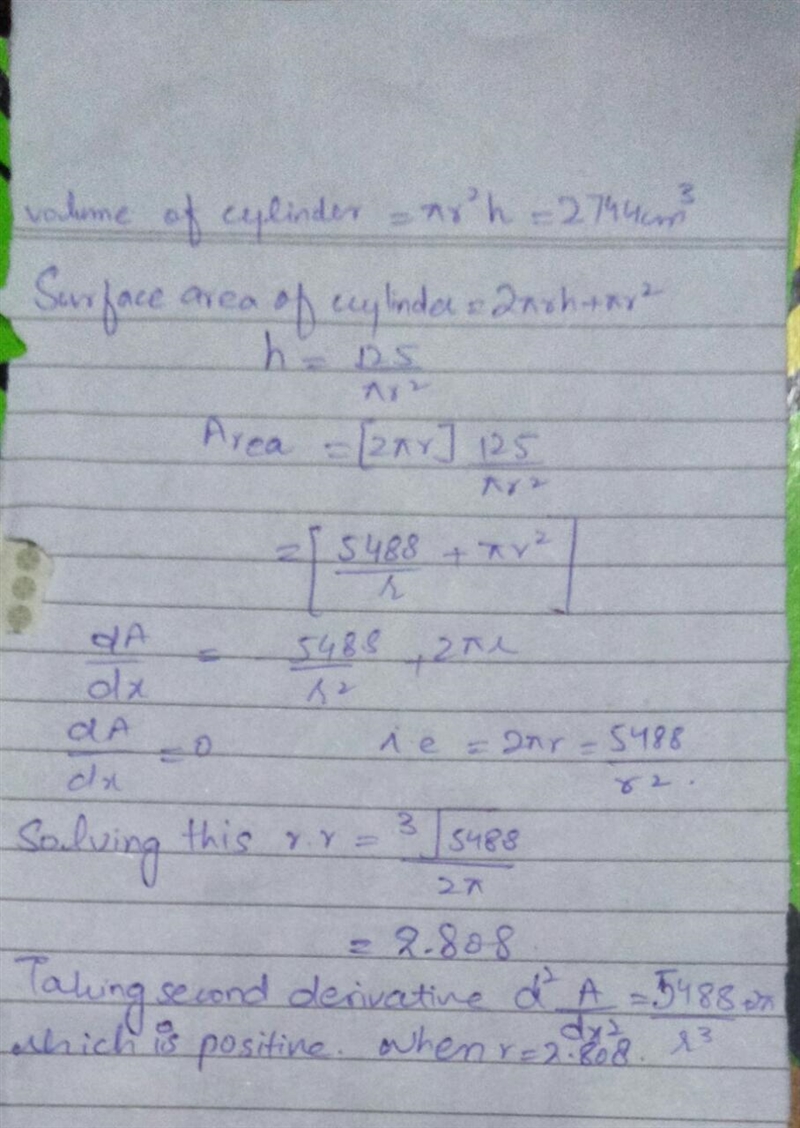 volume of cylinder = πr²h = 2744cm³
Surface area of cylinder = 2πrh+πr²
h = 125/πr²
Area = [2πr] 125/πr²
= [5488/r + πr²]
dA/dx = 5488/r² + 2πr
dA/dx = 0 i e = 2πr = 5488/r².
Solving this r.r = ³√5488/2π
= 2.808.
Taking second derivative d²A/dx² = 5488 2π/r³
which is positive. when r = 2.808.